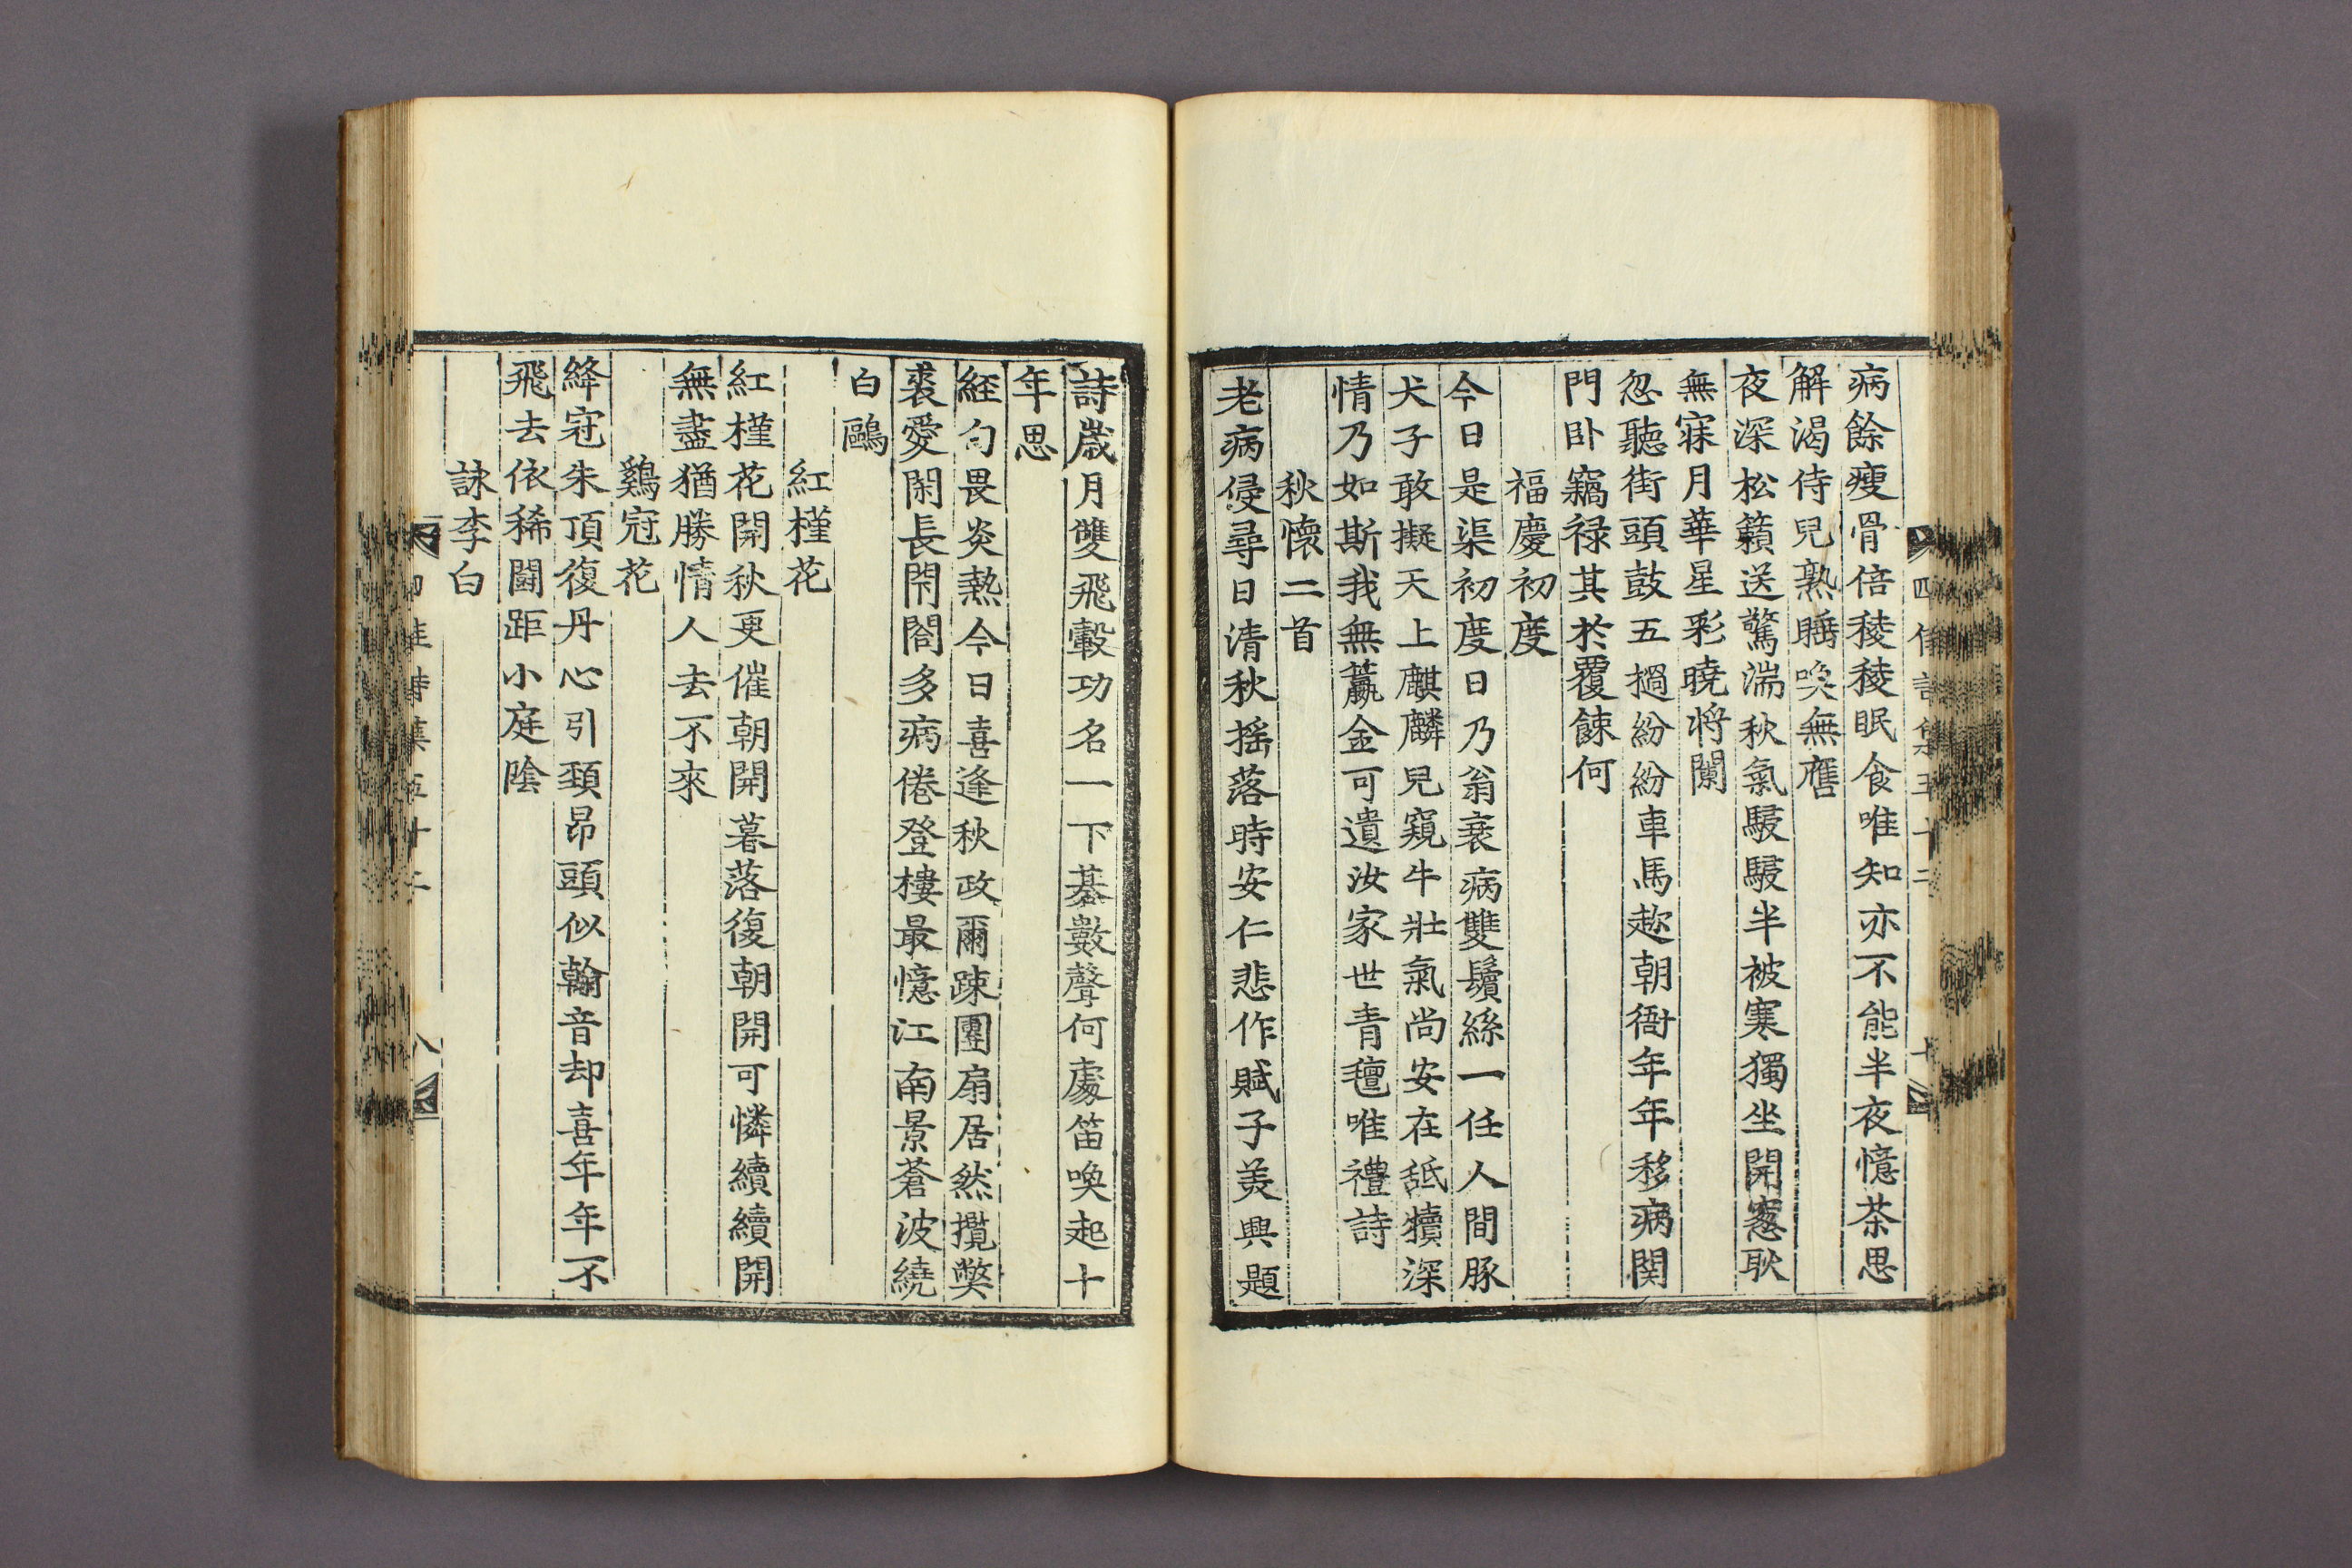 病餘瘦骨倍稜稜眠食唯知亦不能半夜憶茶思
解渴侍兒熟睡喚無譍
夜深松籟送驚湍秋氣駸駸半被寒獨坐開窓耿
無寐月華星彩曉將闌
忽聽街頭鼓五撾紛紛車馬趂朝衙年年移病関
門卧竊禄其於覆餗何
福慶初度
今日是渠初度日乃翁衰病雙鬢絲一任人間豚
犬子敢擬天上麒麟兒窺牛壯氣尚安在舐犢深
情乃如斯我無籯金可遺汝家世青氊唯禮詩
秋懷二首
老病侵尋日清秋揺落時安仁悲作賦子美興題
詩歳月雙飛轂功名一下碁數聲何處笛喚起十
年思
經旬畏炎熱今日喜逢秋政爾踈團扇居然攬獘
裘愛閑長閉閤多病倦登樓最憶江南景蒼波繞
白鷗
紅槿花
紅槿花開秋更催朝開暮落復朝開可憐續續開
無盡猶勝情人去不來
鷄冠花
絳冠朱頂復丹心引頸昂頭似翰音却喜年年不
飛去依稀鬪距小庭陰
詠李白
四佳詩集五十二
八